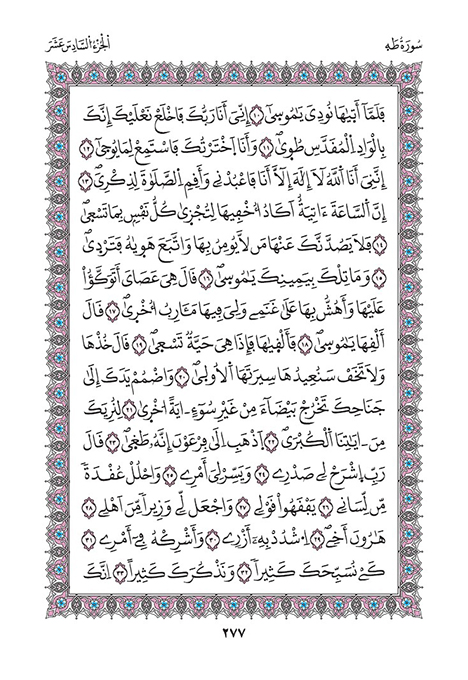 سُورَةُ طَهَ
اَلْجُزْءُ اُلسَّادِسَ عَشَرَ
فَلَمَّآ أَتَيٰهَا نُودِيَ يَٰمُوسَىٰٓ ١٠ إِنِّيَ أَنَا رَبُّكَ فَاخْلَعْ نَعْلَيْكَ إِنَّكَ
بِالْوَادِ اِلْمُقَدَّسِ طُوَىٰ ١١ وَأَنَا اَخْتَرْتُكَ فَاسْتَمِعْ لِمَا يُوحَىٰٓ ١٢
إِنَّنِيَ أَنَا اَللَّهُ لَآ إِلَٰهَ إِلَّآ أَنَا فَاعْبُدْنِے وَأَقِمِ اِلصَّلَوٰةَ لِذِكْرِيَ ١٣
إِنَّ اَلسَّاعَةَ ءَاتِيَةٌ اَكَادُ أُخْفِيهَا لِتُجْزَىٰ كُلُّ نَفْسٍۢ بِمَا تَسْعَىٰ
١٤ فَلَا يَصُدَّنَّكَ عَنْهَا مَن لَّا يُومِنُ بِهَا وَاتَّبَعَ هَوَيٰهُ فَتَرْدَىٰ
١٥ وَمَا تِلْكَ بِيَمِينِكَ يَٰمُوسَىٰ ١٦ قَالَ هِيَ عَصَايَ أَتَوَكَّؤُاْ
عَلَيْهَا وَأَهُشُّ بِهَا عَلَىٰ غَنَمِے وَلِيَ فِيهَا مَـَٔارِبُ أُخْرَىٰ ١٧ قَالَ
أَلْقِهَا يَٰمُوسَىٰ ١٨ فَأَلْقَيٰهَا فَإِذَا هِيَ حَيَّةٌ تَسْعَىٰ ١٩ قَالَ خُذْهَا
وَلَا تَخَفْ سَنُعِيدُهَا سِيرَتَهَا اَلُاولَىٰ ٢٠ وَاضْمُمْ يَدَكَ إِلَىٰ
جَنَاحِكَ تَخْرُجْ بَيْضَآءَ مِنْ غَيْرِ سُوٓءٍ ـ ايَةً اُخْرَىٰ ٢١ لِنُرِيَكَ
مِنَ ـ ايَٰتِنَا اَلْكُبْرَىٰ ٢٢ اَذْهَبِ اِلَىٰ فِرْعَوْنَ إِنَّهُۥ طَغَىٰ ٢٣ قَالَ
رَبِّ اِشْرَحْ لِے صَدْرِے ٢٤ وَيَسِّرْ لِيَ أَمْرِے ٢٥ وَاحْلُلْ عُقْدَةً
مِّن لِّسَانِے ٢٦ يَفْقَهُواْ قَوْلِے ٢٧ وَاجْعَل لِّے وَزِيراً مِّنَ اَهْلِے ٢٨
هَٰرُونَ أَخِے ٢٩ اِشْدُدْ بِهِۦٓ أَزْرِے ٣٠ وَأَشْرِكْهُ فِےٓ أَمْرِے ٣١
كَےْ نُسَبِّحَكَ كَثِيراً ٣٢ وَنَذْكُرَكَ كَثِيراً ٣٣ اِنَّكَ
٢٧٧